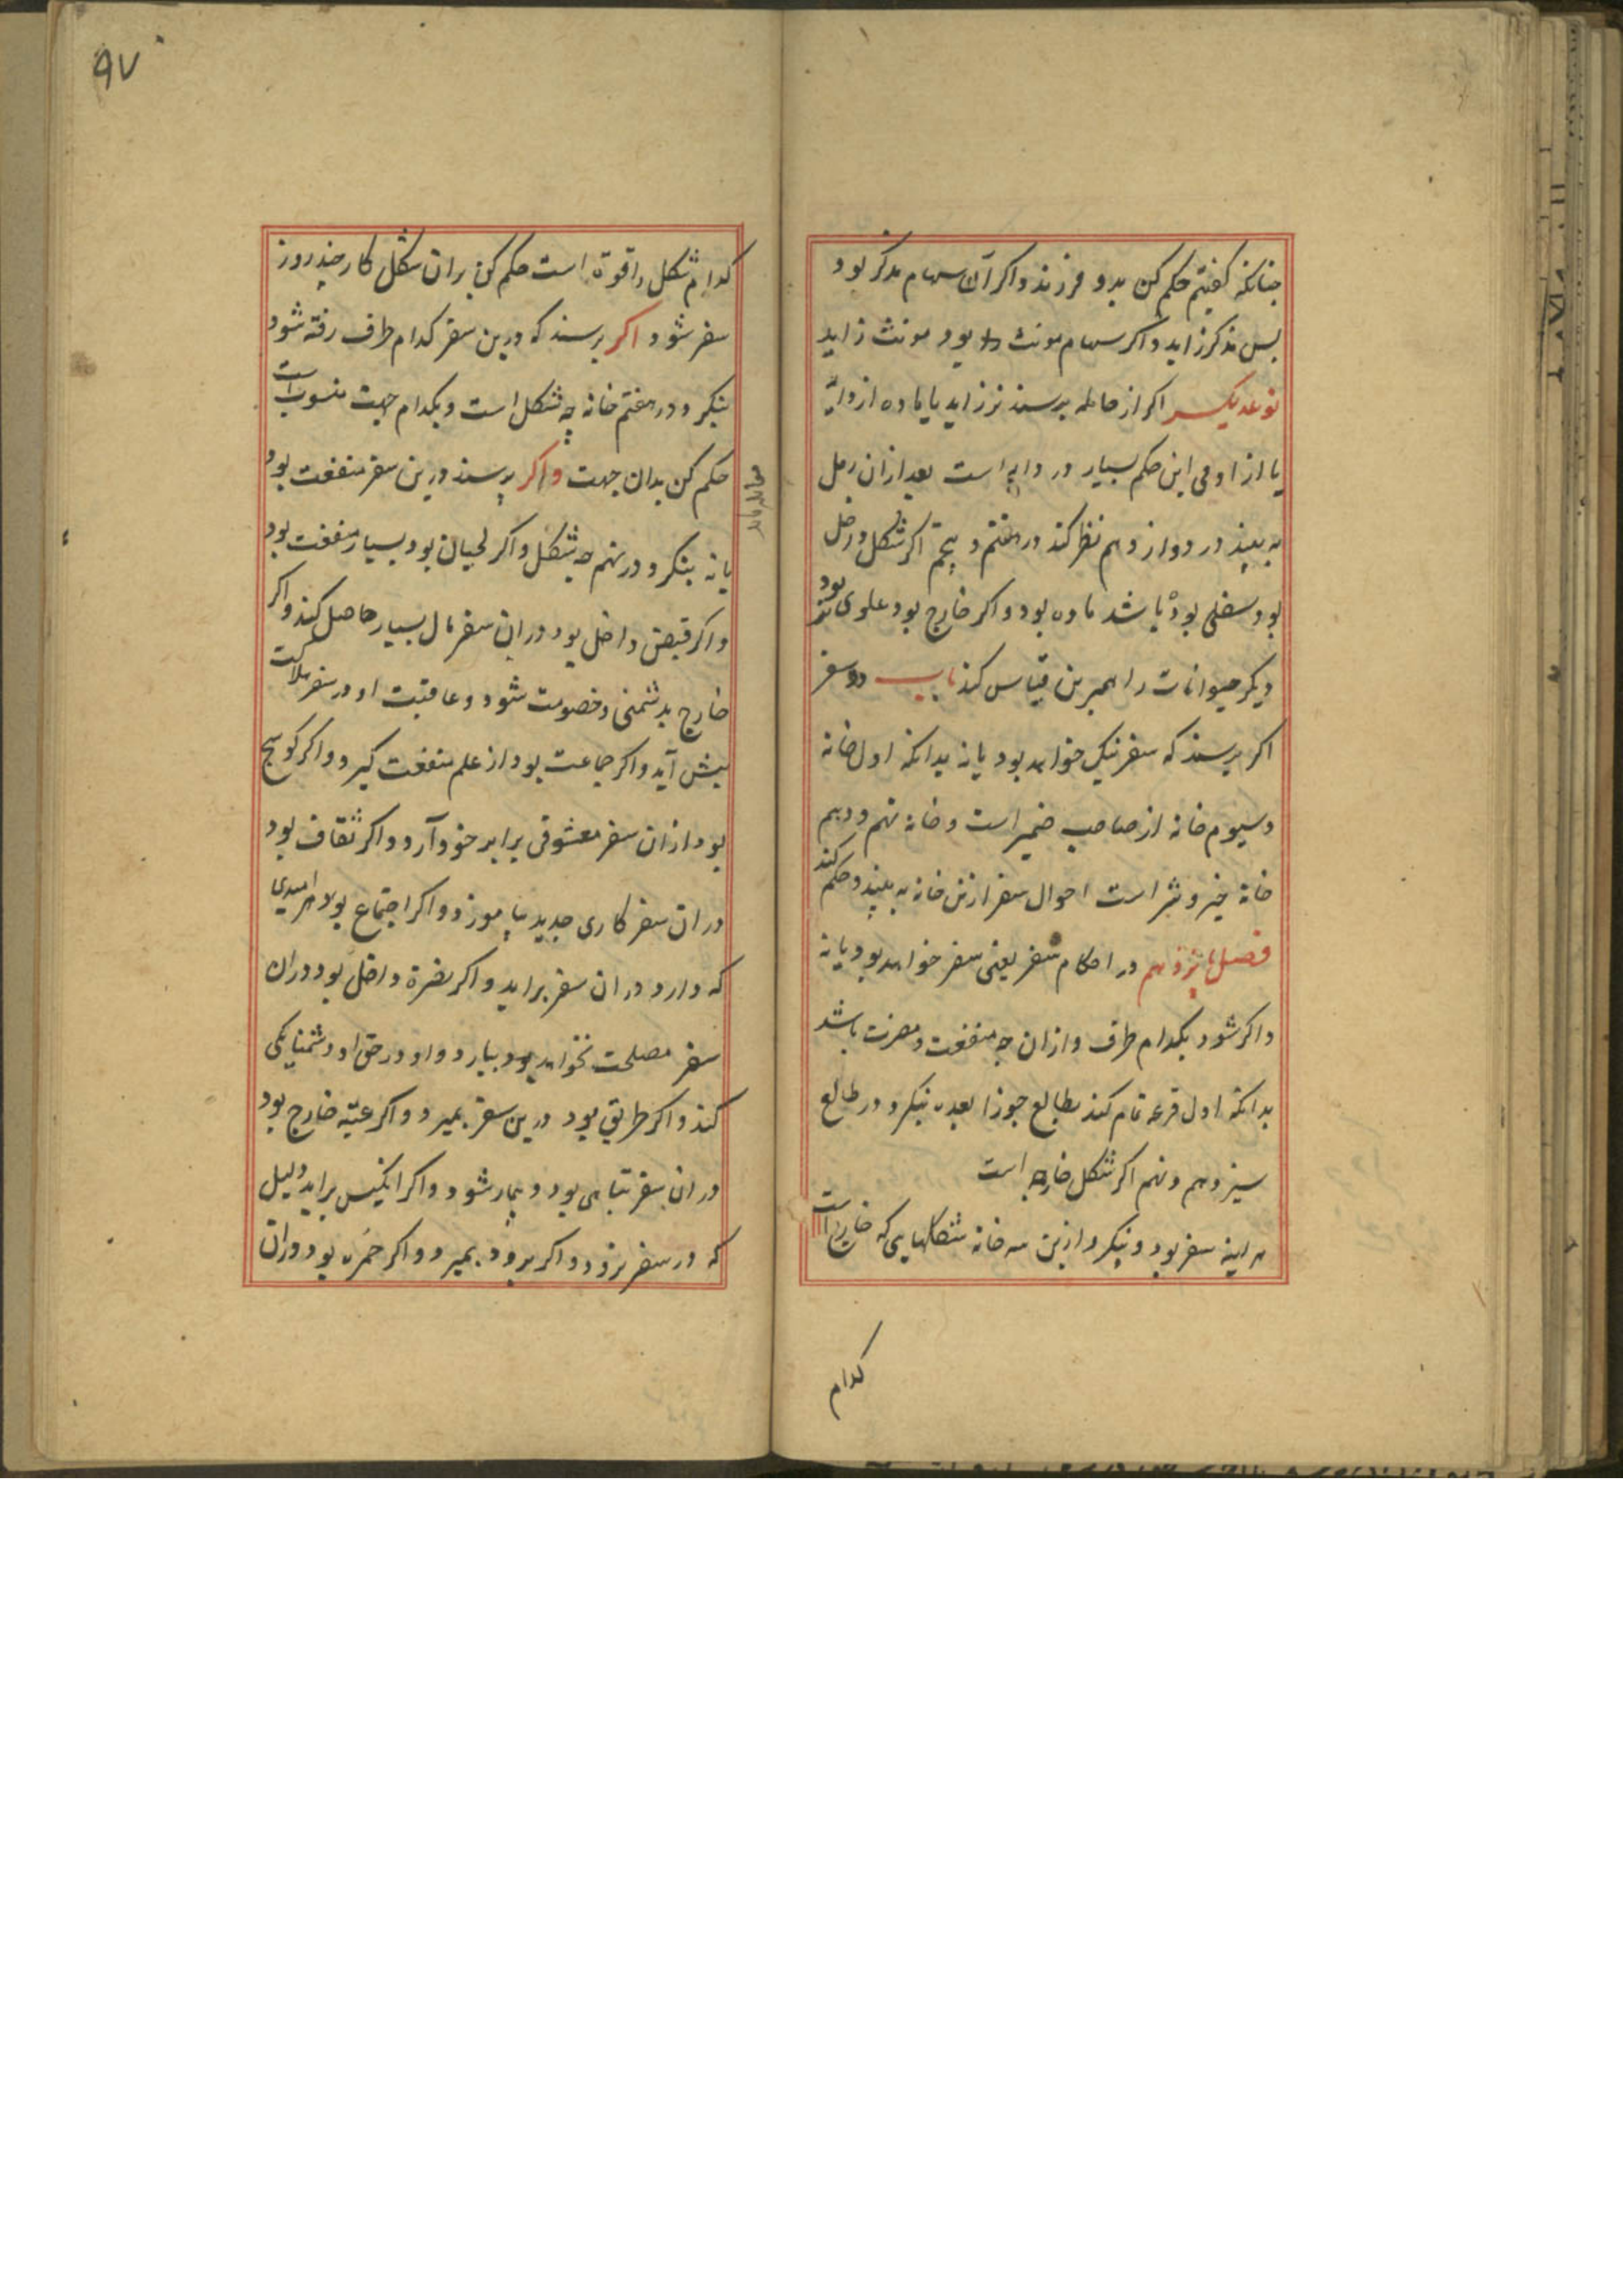 چنانکه کفتیم حکم کن بدو فرزند و اکر آن سهام مذکر بود
بس مذکر زاید و اکر سهام مونث بود مونث زاید
نوعدیکر اکر از حامله برسند نر زاید یا ماده از دوابّ
یا از اومی این حکم بسیار در دابه است بعد ازان رمل
به بیند در دوازدهم نظر کند در هفتم و پنجم اکر شکل داخل
بود سفلی بود باشد ماده بود و اکر خارج بود علوی نر بود
دیکر حیوانات را همبرین قیاس کند باب دو سفر
اکر برسند که سفر نیک خواهد بود یا نه بدانکه اول خانه
و سیوم خانه از صاحب ضمیر است و خانه نهم و دهم
خانه خیر و شر است احوال سفر ازین خانه به بیند و حکم کند
فصل پانزدهم در احکام سفر یعنی سفر خواهد بود یا نه
و اکر شود بکدام طرف و ازان چه منفعت و مضرت باشد
بدانکه اول قرعه تمام کند بطالع جوزا بعده بنکرد در طالع
سیزدهم و نهم اکر شکل خارجه است
هراینه سفر بود و بنکرد ازین سه خانه شکلهایی که خارج است
کدام
۹۷
کدام شکل را قوة است حکم کن بران شکل کار چند روز
سفر شود اکر برسند که درین سفر کدام طرف رفته شود
بنکرد در هفتم خانه چه شکل است و بکدام جهت منسوب است
حکم کن بدان جهت و اکر برسند درین سفر منفعت بود
یا نه بنکرد در نهم چه شکل و اکر لحیان بود بسیار منفعت بود
و اکر قبض داخل بود دران سفر مال بسیار حاصل کند و اکر
خارج بد شمنی و خصومت شود و عاقبت او در سفر هلاکت
پیش آید و اکر جماعت بود از علم منفعت کیرد و اکر کوسج
بود ازان سفر معشوقی برابر خود آرد و اکر ثقاف بود
دران سفر کاری جدید بیاموزد و اکر اجتماع بود هر امیدی
که دارد دران سفر براید و اکر نصرة داخل بود دران
سفر مصلحت نخواهد بود بیارد و او در حق او دشمنایکی
کند و اکر طریق بود درین سفر بمیرد و اکر عتبه خارج بود
دران سفر تباهی بود و بیمار شود و اکر انکیس براید دلیل
که در سفر نرود و اکر برود بمیرد و اکر حمره بود دران